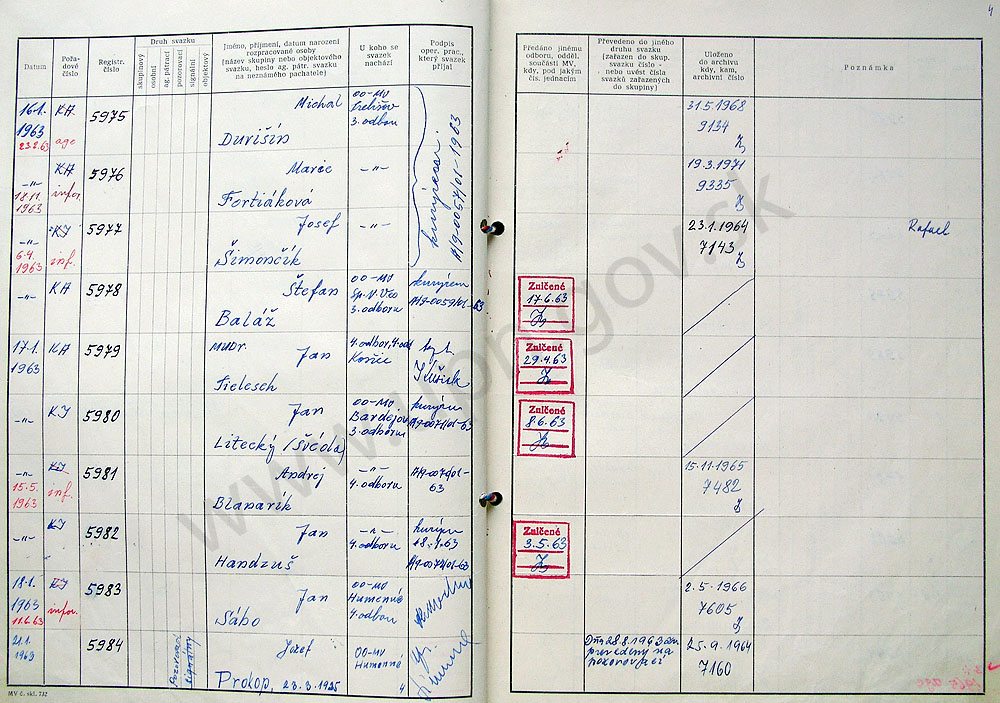 4
Datum
Pořa-
dové
číslo
Registr.
číslo
Druh svazku
skupinový
osobní
ag. pátrací
pozorovací
signální
objektový
Jméno, příjmení, datum narození
rozpracované osoby
(název skupiny nebo objektového
svazku, heslo ag. pátr. svazku
na neznámého pachatele)
U koho se
svazek
nachází
Podpis
oper. prac.,
který svazek
přijal
Předáno jinému
odboru, odděl.
součásti MV,
kdy, pod jakým
čís. jednacím
Převedeno do jiného
druhu svazku
(zařazen do skup.
svazku číslo -
nebo uvést čísla
svazků zařazených
do skupiny)
Uloženo
do archivu
kdy, kam,
archivní číslo
Poznámka
16.1.
1963
23.2.63
KA
age
5975
Michal
Durišín
OO-MV
3. odbor
31.5.1968
9134
-„-
18.11.
1963
KA
infor.
5976
Marie
Fortiáková
-„-
19.3.1971
9335
-„-
6.4.
1963
KI
inf.
5977
Josef
Šimončík
-„-
kurýrem
A/9-0057/01-1963
23.1.1964
7143
Rafael
-„-
KA
5978
Štefan
Baláž
OO-MV
3. odboru
kurýrem
A/9-0059/01-63
Zničené
17.6.63
17.1.
1963
KA
5979
MUDr.
Jan
Tielesch
Košice
Zničené
29.4.63
-„-
KI
5980
Jan
Litecký (Švéda)
OO-MV
Bardejov
3. odboru
kurýrem
A/9-0074/01-63
Zničené
8.6.63
-„-
15.5.
1963
KI
inf.
5981
Andrej
Blaparík
-„-
4. odboru
63
15.11.1965
7482
-„-
KI
5982
Jan
Handzuš
-„-
4. odboru
kurýrem
A/9-0074/01-63
Zničené
3.5.63
18.1.
1963
11.6.63
KI
infor.
5983
Jan
Sábo
OO-MV
Humenné
4. odbor
2.5.1966
7605
21.1.
1963
5984
Pozorovací
signálny
Jozef
Prokop, 23.3.1925
OO-MV
Humenné
4
Dňa 28.8.1963 zv.
prevedený na
pozorovací
25.9.1964
7160
MV č. skl. 732
www.upn.gov.sk